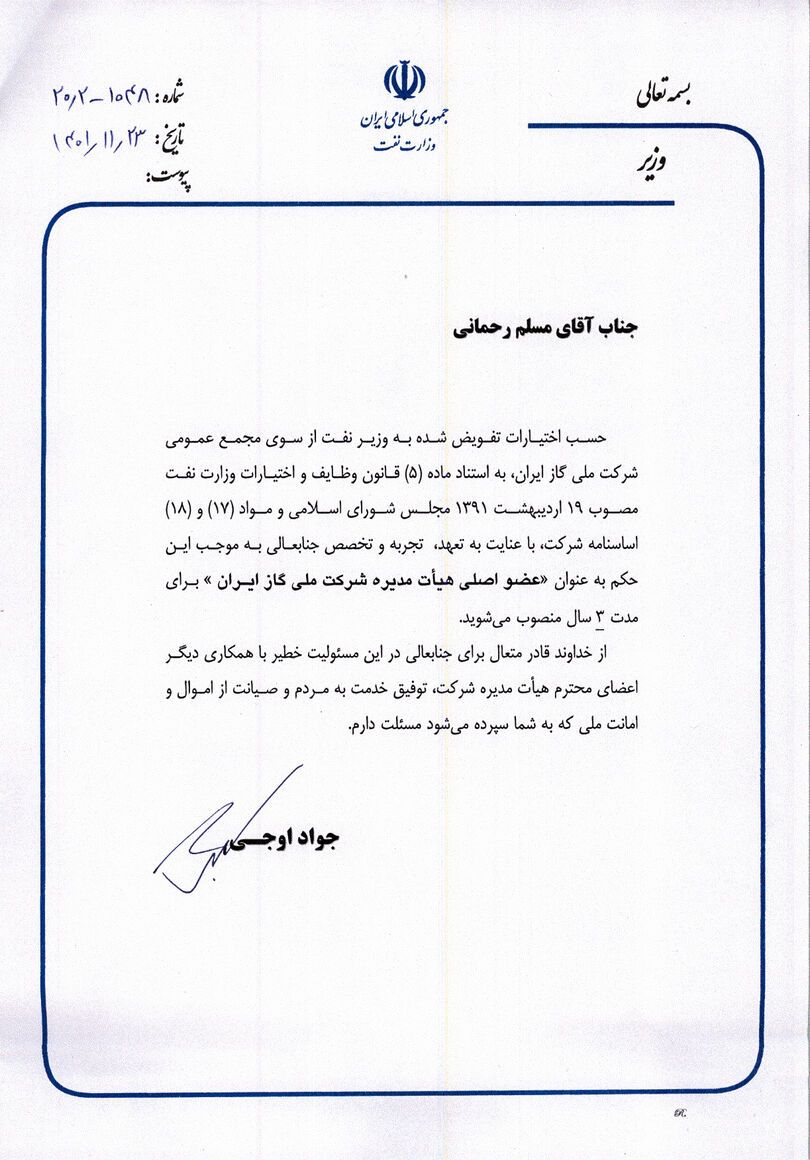 بسمه تعالی
وزیر
جمهوری اسلامی ایران
وزارت نفت
شماره: ۲۰/۲-۱۰۴۸
تاریخ: ۱۴۰۱/۱۱/۲۳
پیوست:
جناب آقای مسلم رحمانی
حسب اختیارات تفویض شده به وزیر نفت از سوی مجمع عمومی
شرکت ملی گاز ایران، به استناد ماده (۵) قانون وظایف و اختیارات وزارت نفت
مصوب ۱۹ اردیبهشت ۱۳۹۱ مجلس شورای اسلامی و مواد (۱۷) و (۱۸)
اساسنامه شرکت، با عنایت به تعهد، تجربه و تخصص جنابعالی به موجب این
حکم به عنوان «عضو اصلی هیأت مدیره شرکت ملی گاز ایران » برای
مدت ۳ سال منصوب می‌شوید.
از خداوند قادر متعال برای جنابعالی در این مسئولیت خطیر با همکاری دیگر
اعضای محترم هیأت مدیره شرکت، توفیق خدمت به مردم و صیانت از اموال و
امانت ملی که به شما سپرده می‌شود مسئلت دارم.
جواد اوجی
R.